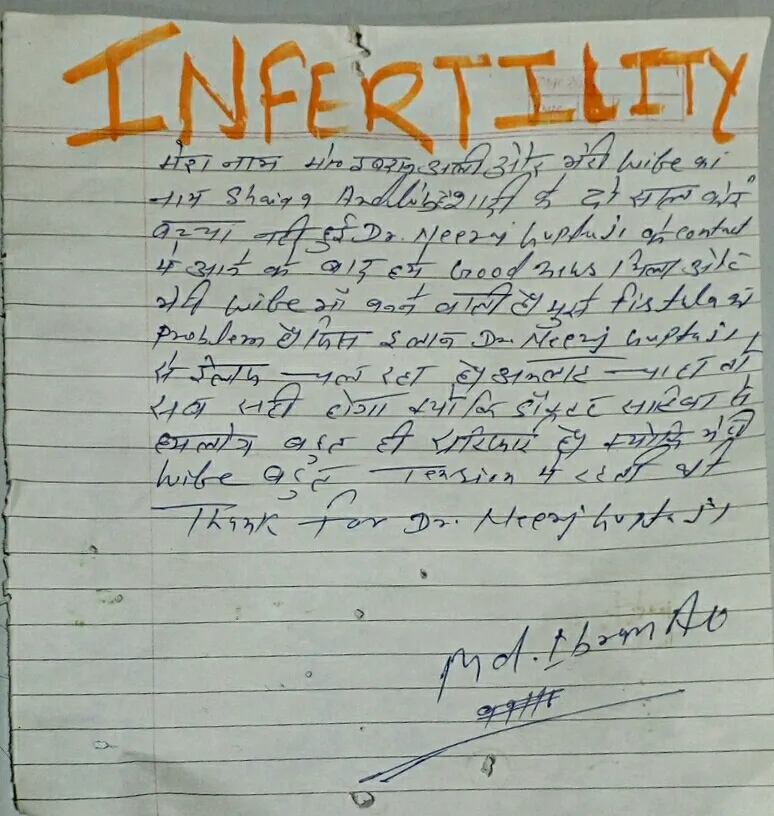 INFERTILITY
मेरा नाम मो० इकराम अली और मेरी wife का
नाम Shaina है शादी के दो साल कोई
बच्चा नही हुई Dr. Neeraj Guptaji के contact
मे आने के बाद हमे Good news मिला और
मेरी wife माँ बनने वाली है। मुझे fistula का
problem है। जिस इलाज Dr. Neeraj Guptaji
से ईलाज चल रहा है। अल्लाह चाहा तो
सब सही होगा क्यों कि डॉक्टर साहिबा के
हमलोग बहुत ही है। क्योंकि मेरी
wife बहुत Tension मे रहती थी
Thank For Dr. Neeraj Guptaji
Md.